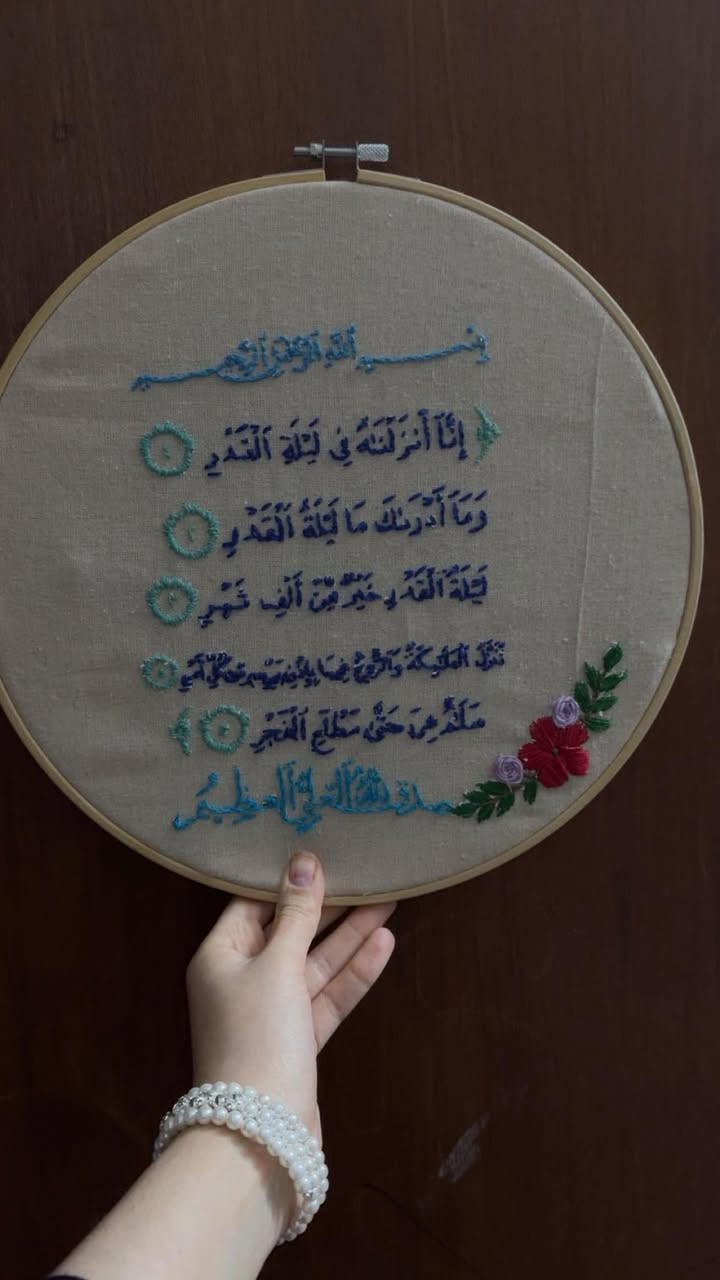 بسم الله الرحمن الرحيم
﴿ إِنَّآ أَنزَلْنَٰهُ فِى لَيْلَةِ ٱلْقَدْرِ ١
وَمَآ أَدْرَىٰكَ مَا لَيْلَةُ ٱلْقَدْرِ ٢
لَيْلَةُ ٱلْقَدْرِ خَيْرٌ مِّنْ أَلْفِ شَهْرٍ ٣
تَنَزَّلُ ٱلْمَلَٰٓئِكَةُ وَٱلرُّوحُ فِيهَا بِإِذْنِ رَبِّهِم مِّن كُلِّ أَمْرٍ ٤
سَلَٰمٌ هِىَ حَتَّىٰ مَطْلَعِ ٱلْفَجْرِ ٥ ﴾
صدق الله العلي العظيم